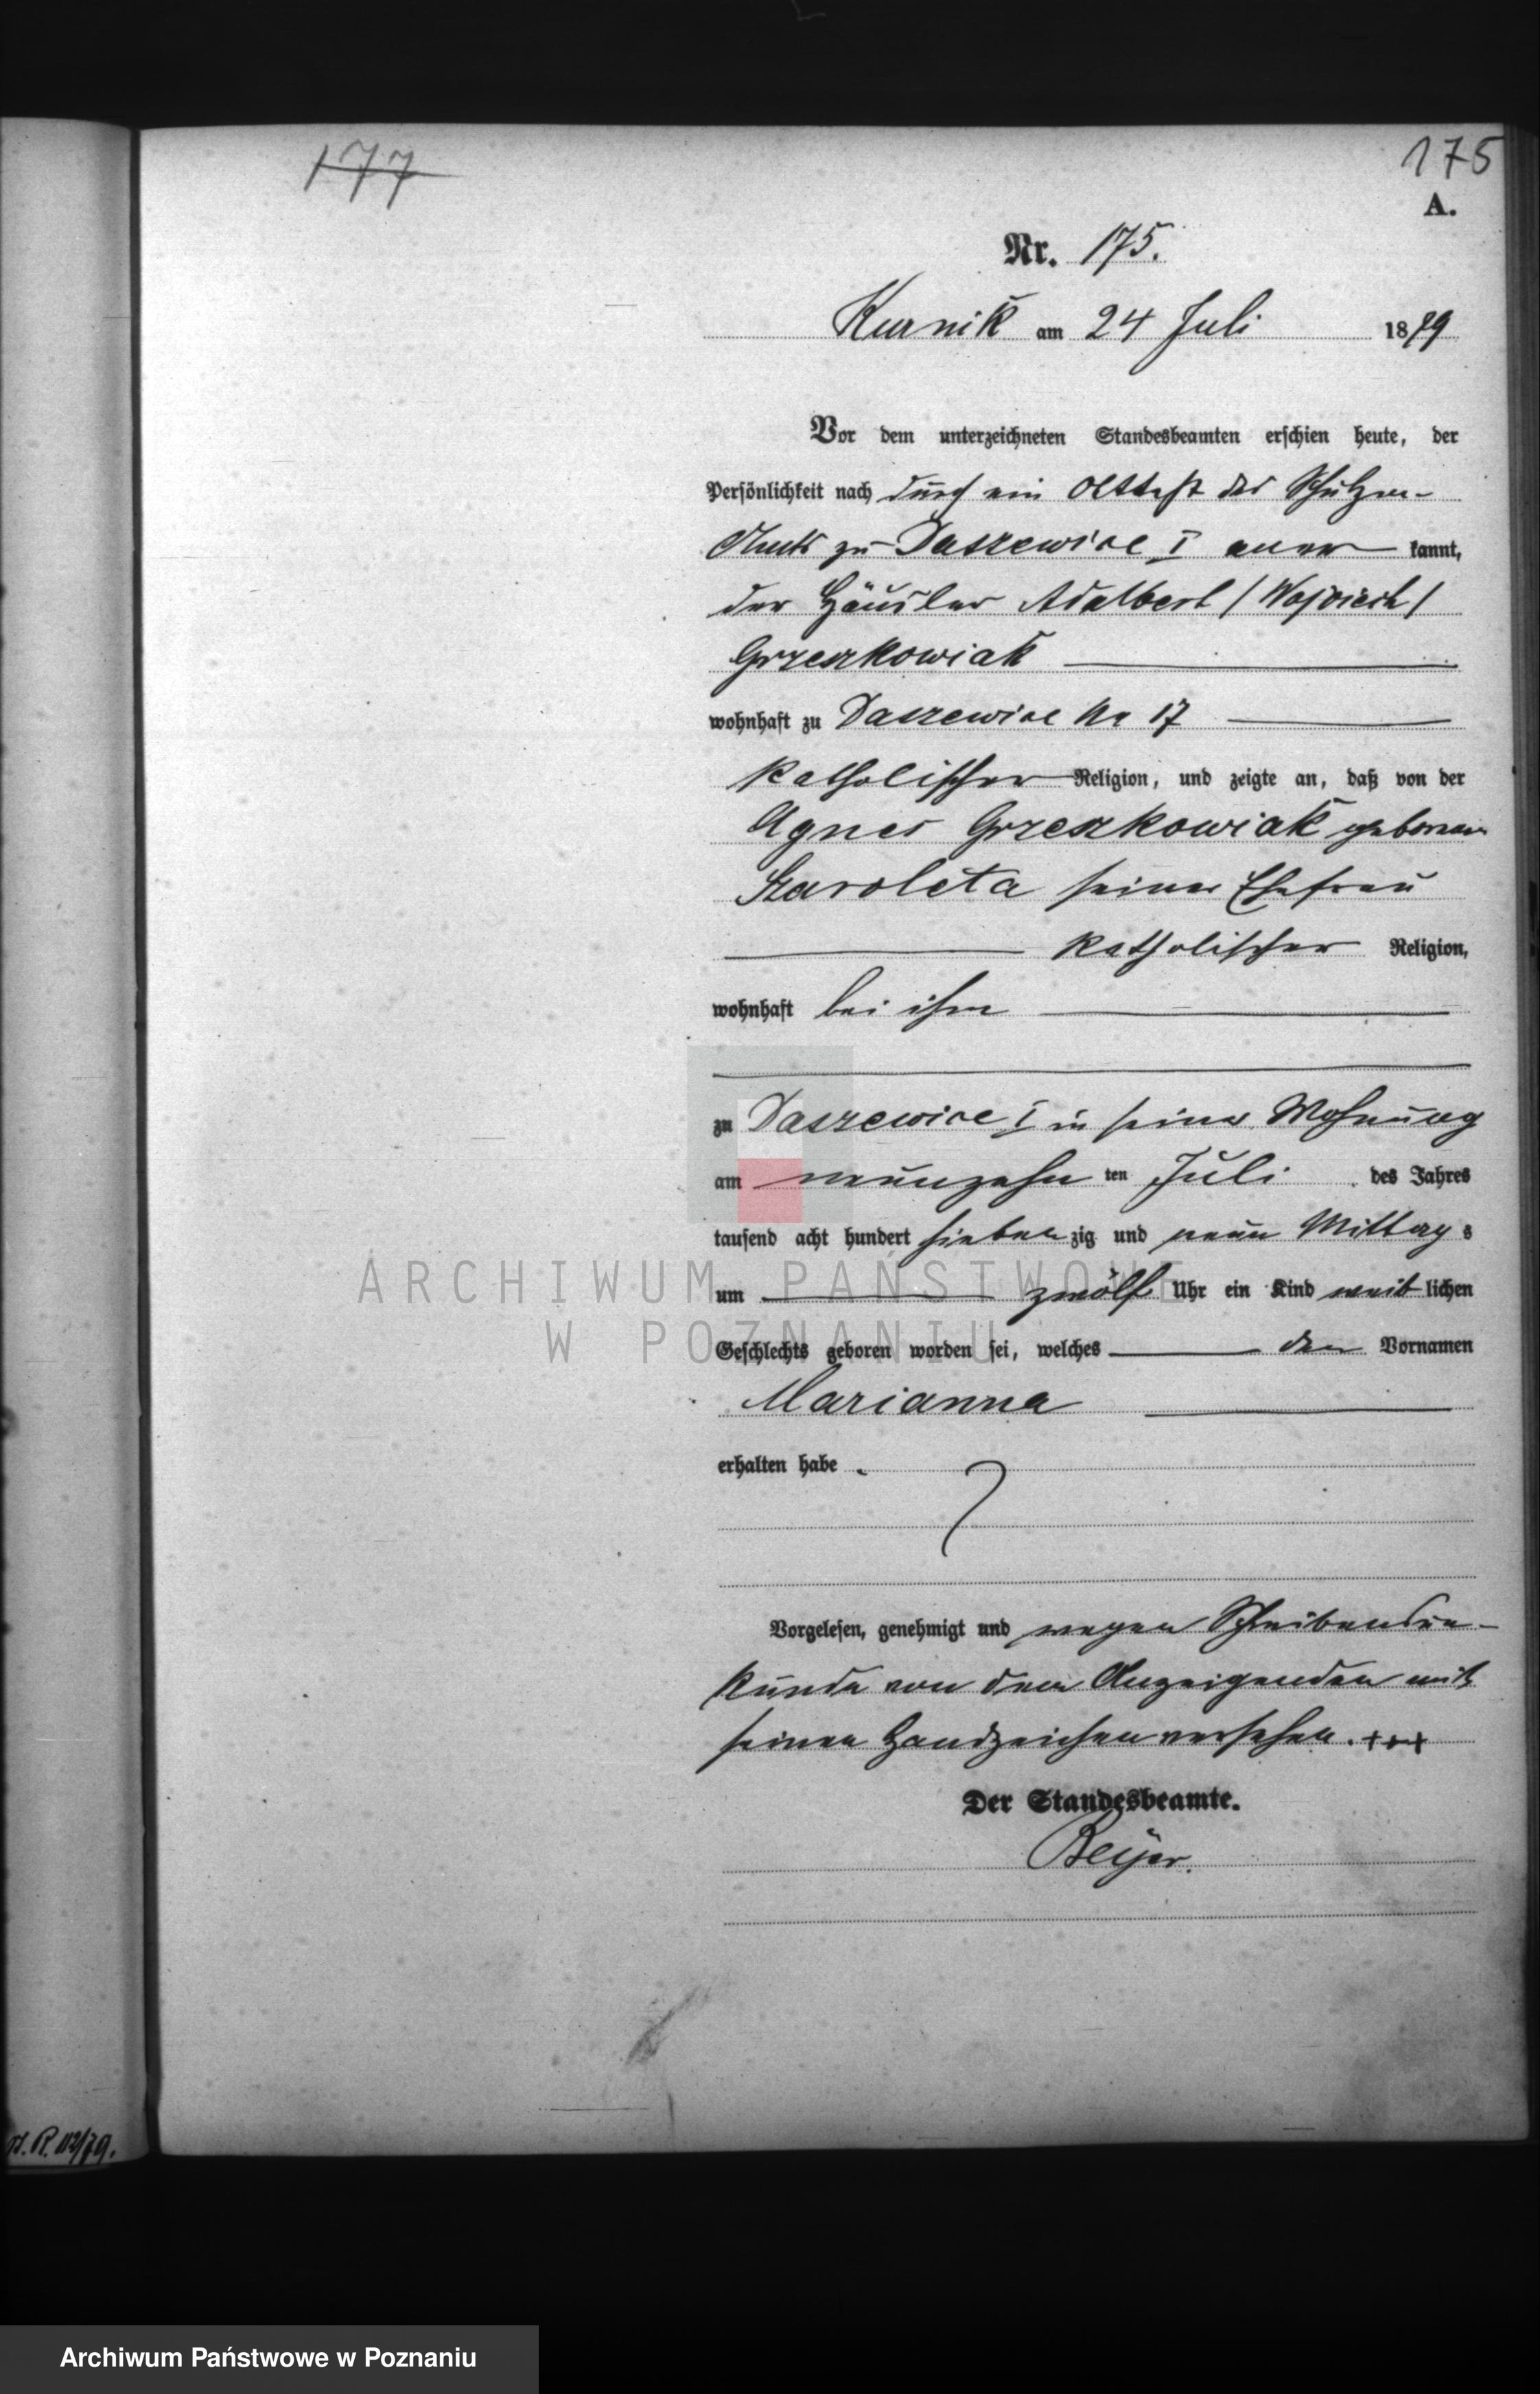 177
175
A.
Nr. 175.
Kurnik am 24 Juli 1879
Vor dem unterzeichneten Standesbeamten erschien heute, der
Persönlichkeit nach durch ein Attest des Schulzen-
Amts zu Daszewice I aner kannt,
der Häusler Adalbert / Wojciech /
Grzeszkowiak
wohnhaft zu Daszewice No 17
katholischer Religion, und zeigte an, daß von der
Agnes Grzeszkowiak geborene
Szaroleta seiner Ehefrau
katholischer Religion,
wohnhaft bei ihm
zu Daszewice I in seiner Wohnung
am neunzehn ten Juli des Jahres
tausend acht hundert sieben zig und neun Mittag s
um zwölf Uhr ein Kind weib lichen
Geschlechts geboren worden sei, welches den Vornamen
Marianna
erhalten habe.
Vorgelesen, genehmigt und wegen Schreibensun-
kunde von dem Anzeigenden mit
seinen Handzeichen versehen. +++
Der Standesbeamte.
Beijer.
R. 112/79.
ARCHIWUM PAŃSTWOWE
W POZNANIU
Archiwum Państwowe w Poznaniu